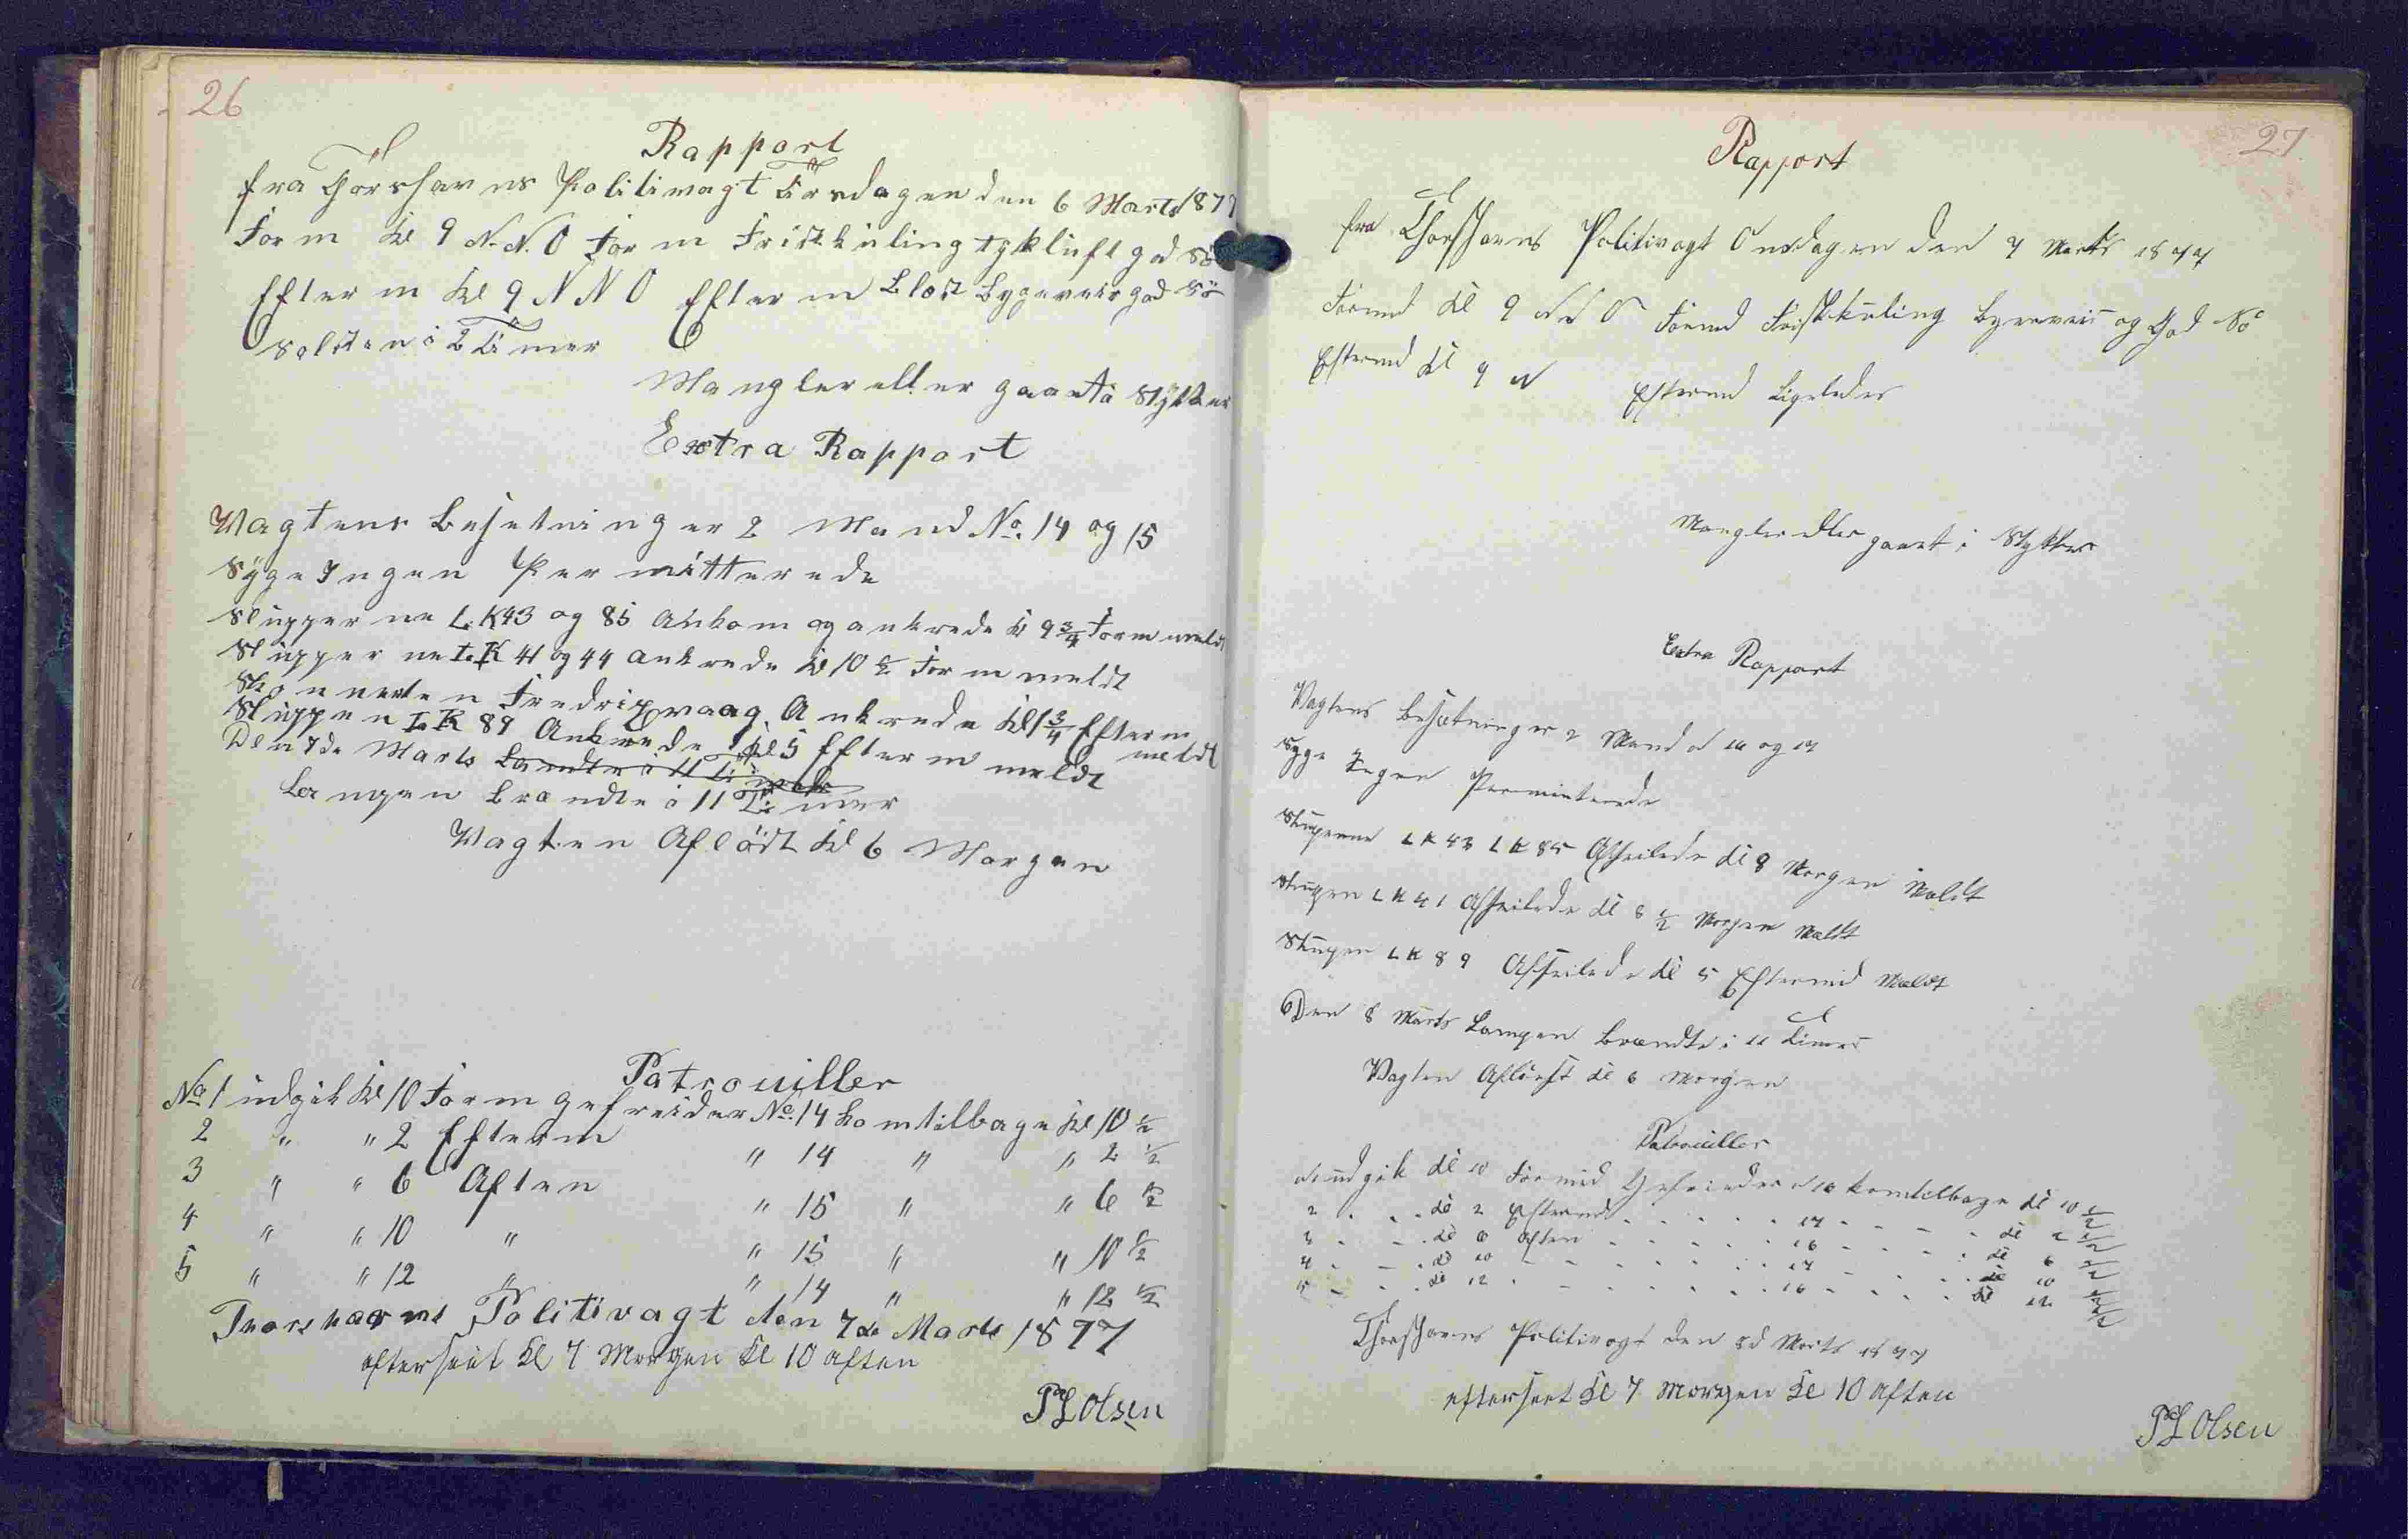 26
Rapport
fra Thorshavns Politivagt Tirsdagen den 6 Marts 1877
Form Kl 9 N.N.O Form Friskkuling tykluft god Sö
Efter m Kl 9 N N O Efter m Blæst Bygeveir god Sö
Solsten i 2 Timer
Mangler eller gaaet i Stykker
Extra Rapport
Vagtens Besetning er 2 Mand No. 14 og 15
Syge Ingen Permitterede
Slupperne L.K 43 og 85 Ankom og ankrede Kl 9 3/4 Form meldt
Slupperne L.K 41 og 44 ankrede Kl 10 1/2 Form meldt
Skonnerten Fredrixvaag Ankrede Kl 1 3/4 Efterm meldt
Sluppen L.K 89 Ankrede Kl 5 Efterm meldt
Den 7de Marts
Lampen brændte i 11 Timer
Vagten Aflöst Kl 6 Morgen
Patrouiller
No 1 udgik Kl 10 Form gefreider No. 14 kom tilbage Kl 10 1/2
2 " " 2 Efterm " 14 " " 2 1/2
3 " " 6 Aften " 15 " " 6 1/2
4 " " 10 " " 15 " " 10 1/2
5 " " 12 " " 14 " " 12 1/2
Thorshavns Politivagt den 7de Marts 1877
efterseet Kl 7 Morgen Kl 10 aften
P L Olsen
27
Rapport
fra Thorshavns Politivagt Onsdagen den 7 Marts 1877
Formd Kl 9 N N O Formd Friskkuling Bygeveir og God Sö
Eftermd Kl 9 N Eftermd Ligeledes
Mangler eller gaaet i Stykker
Extra Rapport
Vagtens Besætning er 2 Mand N 16 og 17
Syge Ingen Permitterede
Slupperne L K 43 L K 85 Afseilede Kl 8 Morgen Meldt
Sluppen L K 41 Afseilede Kl 8 1/2 Morgen Meldt
Sluppen L K 89 Afseilede Kl 5 Eftermd Meldt
Den 8 Marts Lampen Brændte i 11 Timer
Vagten Aflöest Kl 6 Morgen
Patrouiller
N 1 udgik Kl 10 Formid Gefreider N 16 kom tilbage Kl 10 1/2
2 . . . Kl 2 Eftermd . . . . . 17 . . . . Kl 2 1/2
3 . . . Kl 6 Aften . . . . . 16 . . . . Kl 6 1/2
4 . . . Kl 10 . . . . . . . 17 . . . . Kl 10 1/2
5 . . . Kl 12 . . . . . . . 16 . . . . Kl 12 1/2
Thorshavns Politivagt den 8d Marts 1877
efterseet Kl 7 Morgen Kl 10 Aften
P L Olsen